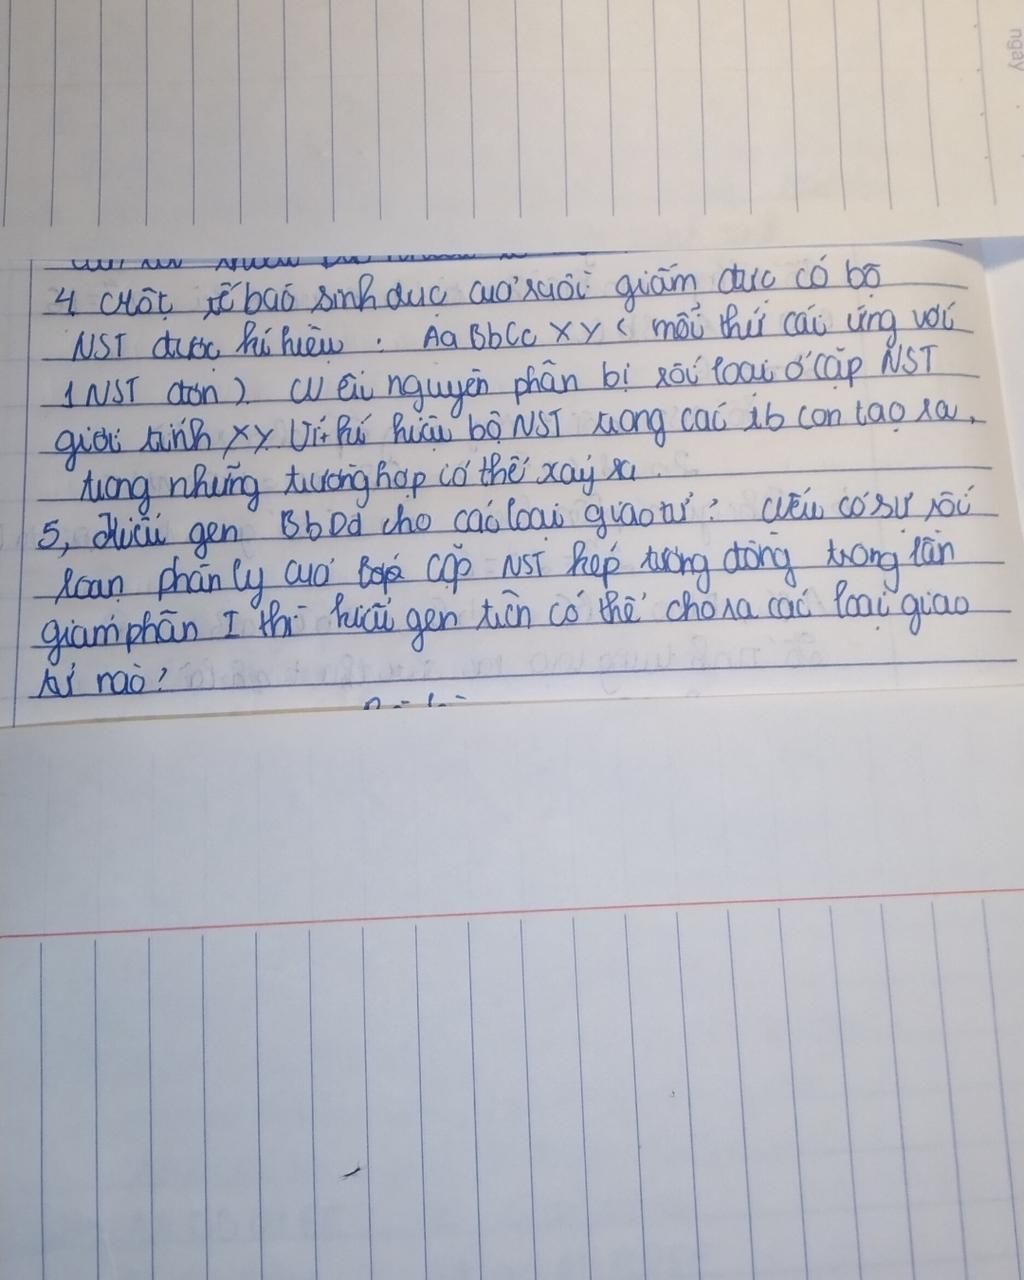 4 Một tế bào sinh dục của ruồi giấm đực có bộ
NST được kí hiệu : Aa Bb Cc XY ( mỗi thứ cái ứng với
1 NST đơn ) Nếu nguyên phân bị rối loại ở cặp NST
giới tính XY Viết kí hiệu bộ NST trong các tb con tạo ra,
trong những trường hợp có thể xảy ra
5, Kiểu gen BbDd cho các loại giao tử ? Nếu có sự rối
loạn phân ly của cặp NST kép tương đồng trong lần
giảm phân I thì kiểu gen trên có thể cho ra các loại giao
tử nào ?
ngày